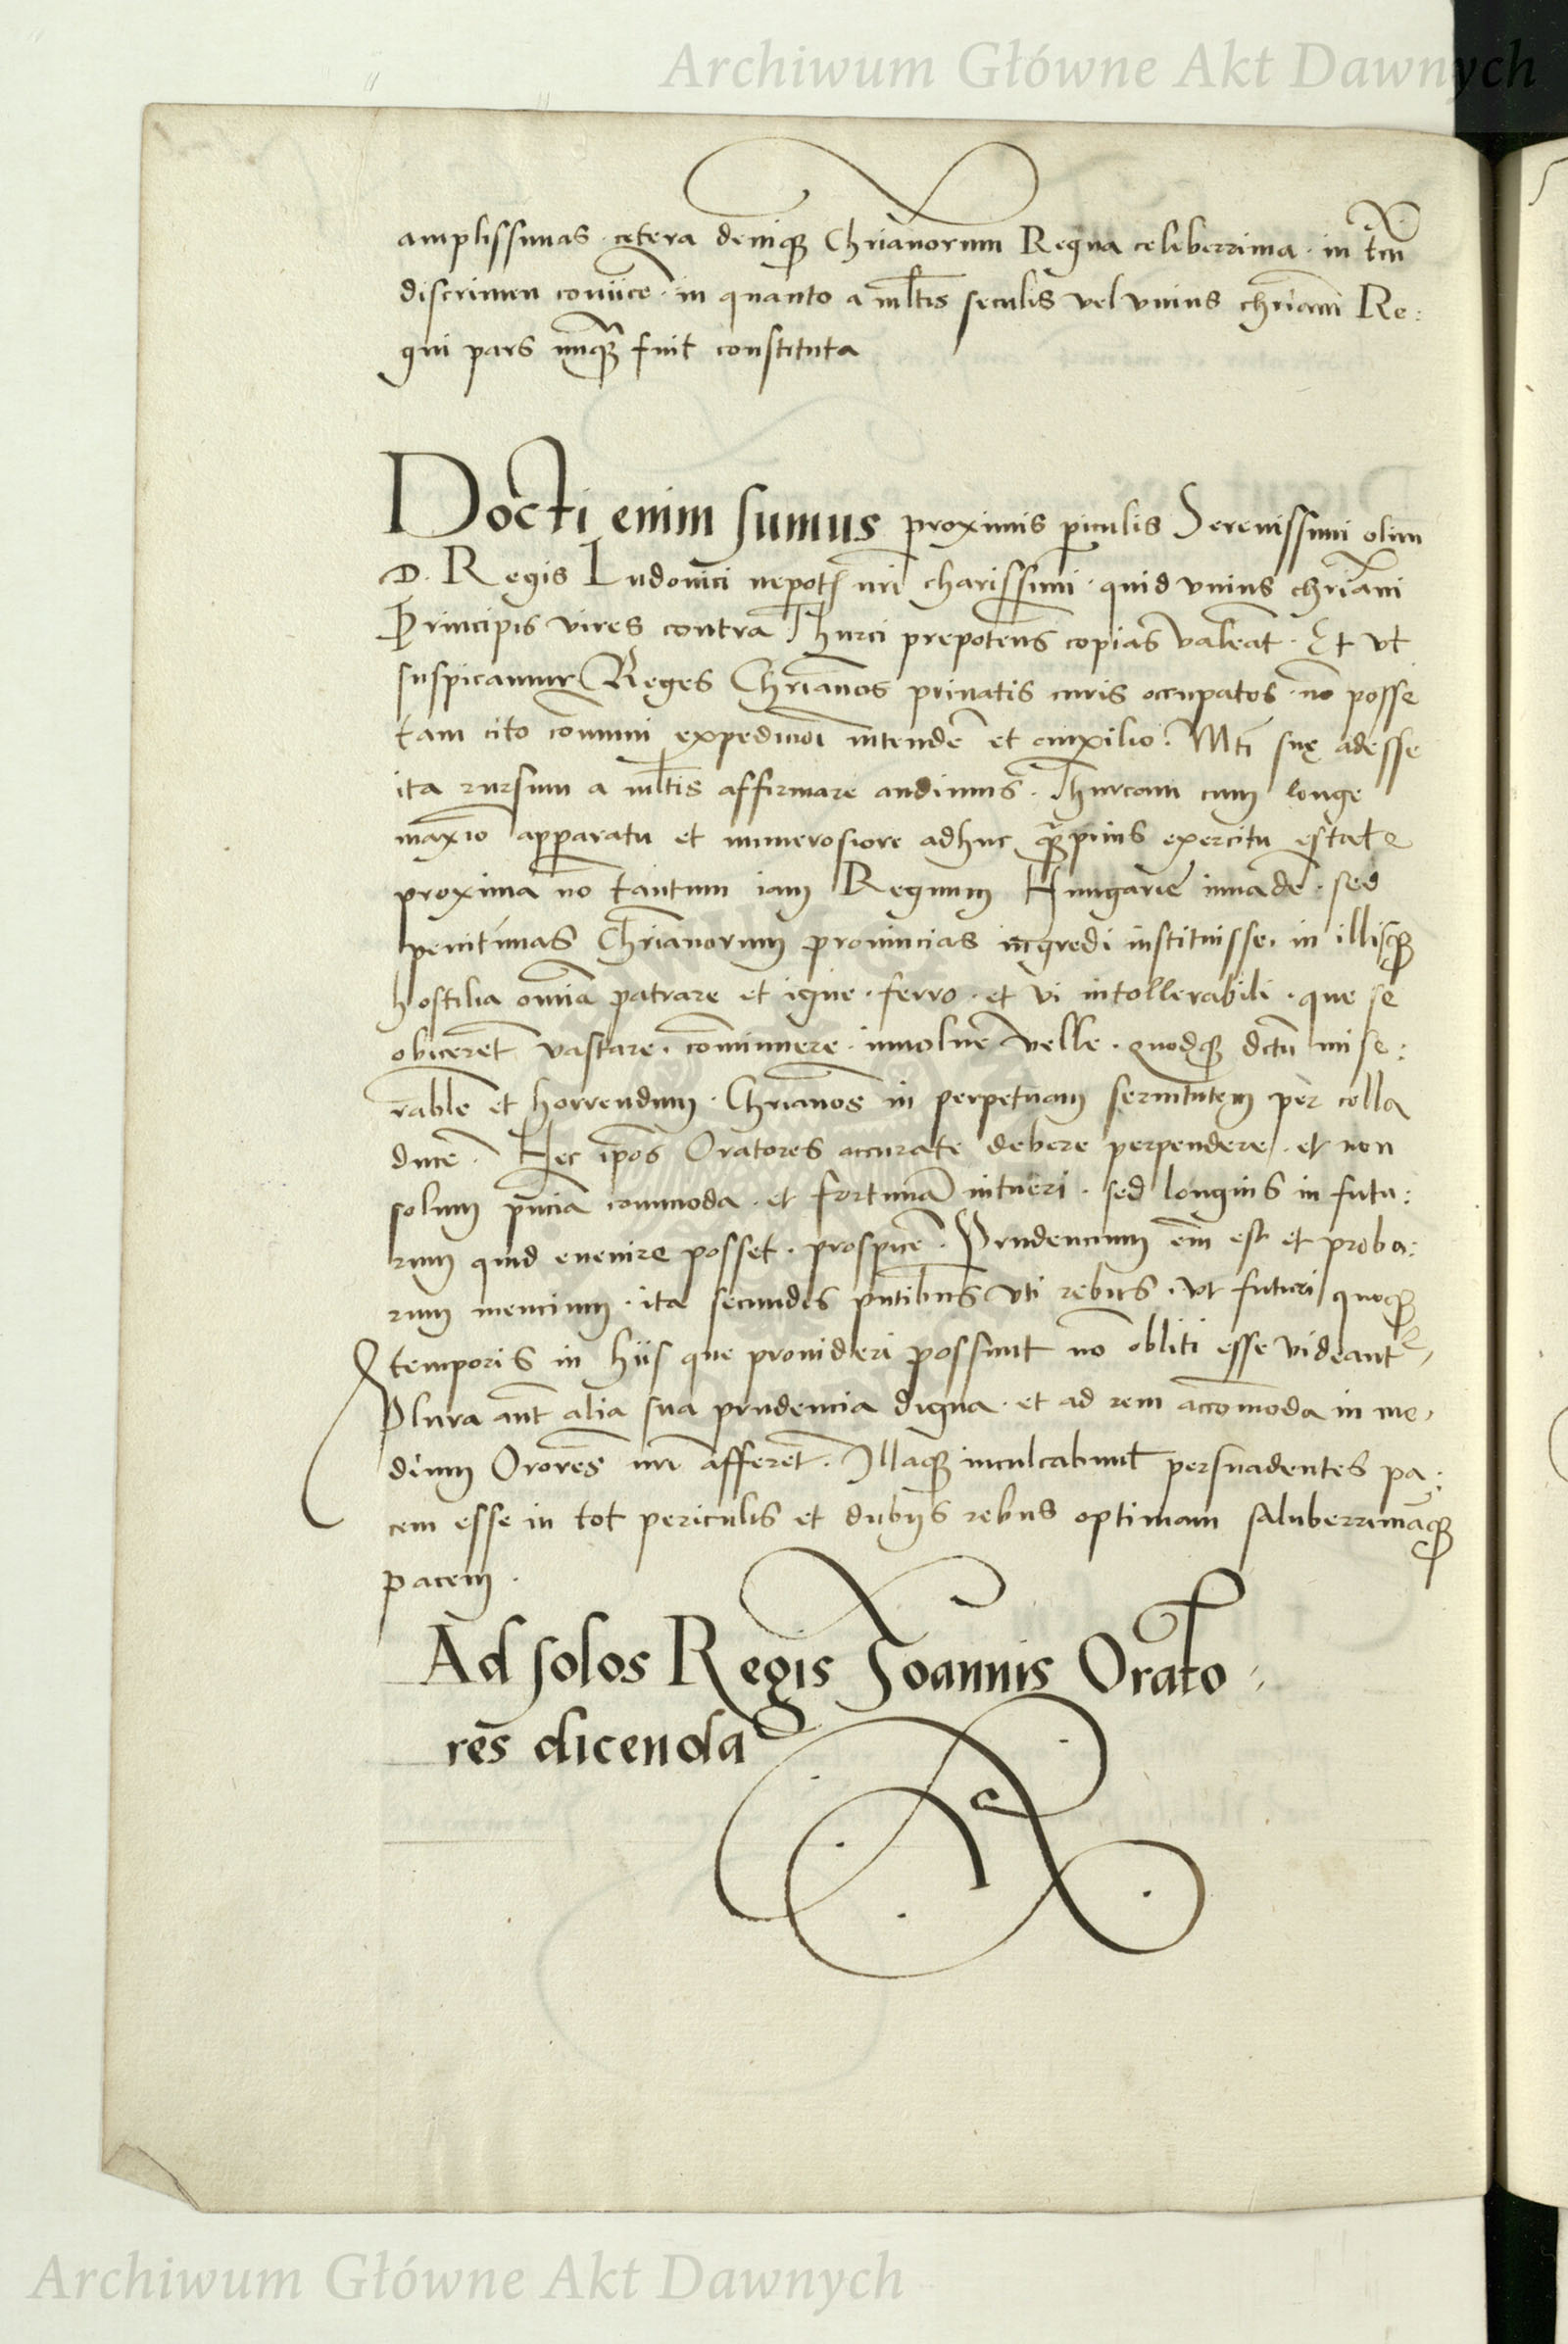 Archiwum Główne Akt Dawnych
amplissimas · cętera deniqꝫ Chr̄ianorum Regna celeberrima · in tm̄
discrimen coniicē · in quanto a ml̄tis seculis vel vnius chr̄iani Re:
gni pars nunqꝫ̄ fuit constituta
Docti enim sumus proximis ꝑiculis Serenissimi olim
D. Regis Ludouici nepotꝭ nr̄i charissimi · quid vnius chr̄iani
Principis vires contra Thurci prepotens copias valeant̄ · Et vt
suspicamur Reges Chr̄ianos priuatis curis occupatos · nō posse
tam cito cōmuni expedicōi intendē et auxilio · Mti suę adesse
ita rursum a ml̄tis affirmare audimus · Thurcam cum longe
maxīo apparatu et numerosiore adhuc qꝫ̄ prius exercitu estate
proxima nō tantum iam Regnum Hungarie inuadē · sed
penitimas Chr̄ianorum prouincias ingredi instituisse · in illisqꝫ
hostilia om̄ia patrare et igne · ferro · et vi intollerabili · que se
obicerēt vastare · cōminuere · inuoluē velle · quodqꝫ dc̄tu mise:
rable et horrendum · Chr̄ianos in perpetuam seruitutem per colla
ducē · Hec ip̄os Oratores accurate debere perpendere · et non
solum pn̄cia commoda · et fortunā intueri · sed longius in futu:
rum quid euenire posset · prospicē · Prudencium em̄ est et probo:
rum mencium · ita secundis pn̄tibus vti rebus · vt futuri quoqꝫ
temporis in hiis que prouideri possunt nō obliti esse videant
Plura aut̄ alia sua prudencia digna · et ad rem accōmoda in me,
dium Orōres nr̄i afferēt · Illaqꝫ inculcabunt persuadentes pa:
cem esse in tot periculis et dubijs rebus optimam saluberrimāqꝫ
pacem ·
Ad solos Regis Joannis Orato,
rēs dicenda
Archiwum Główne Akt Dawnych